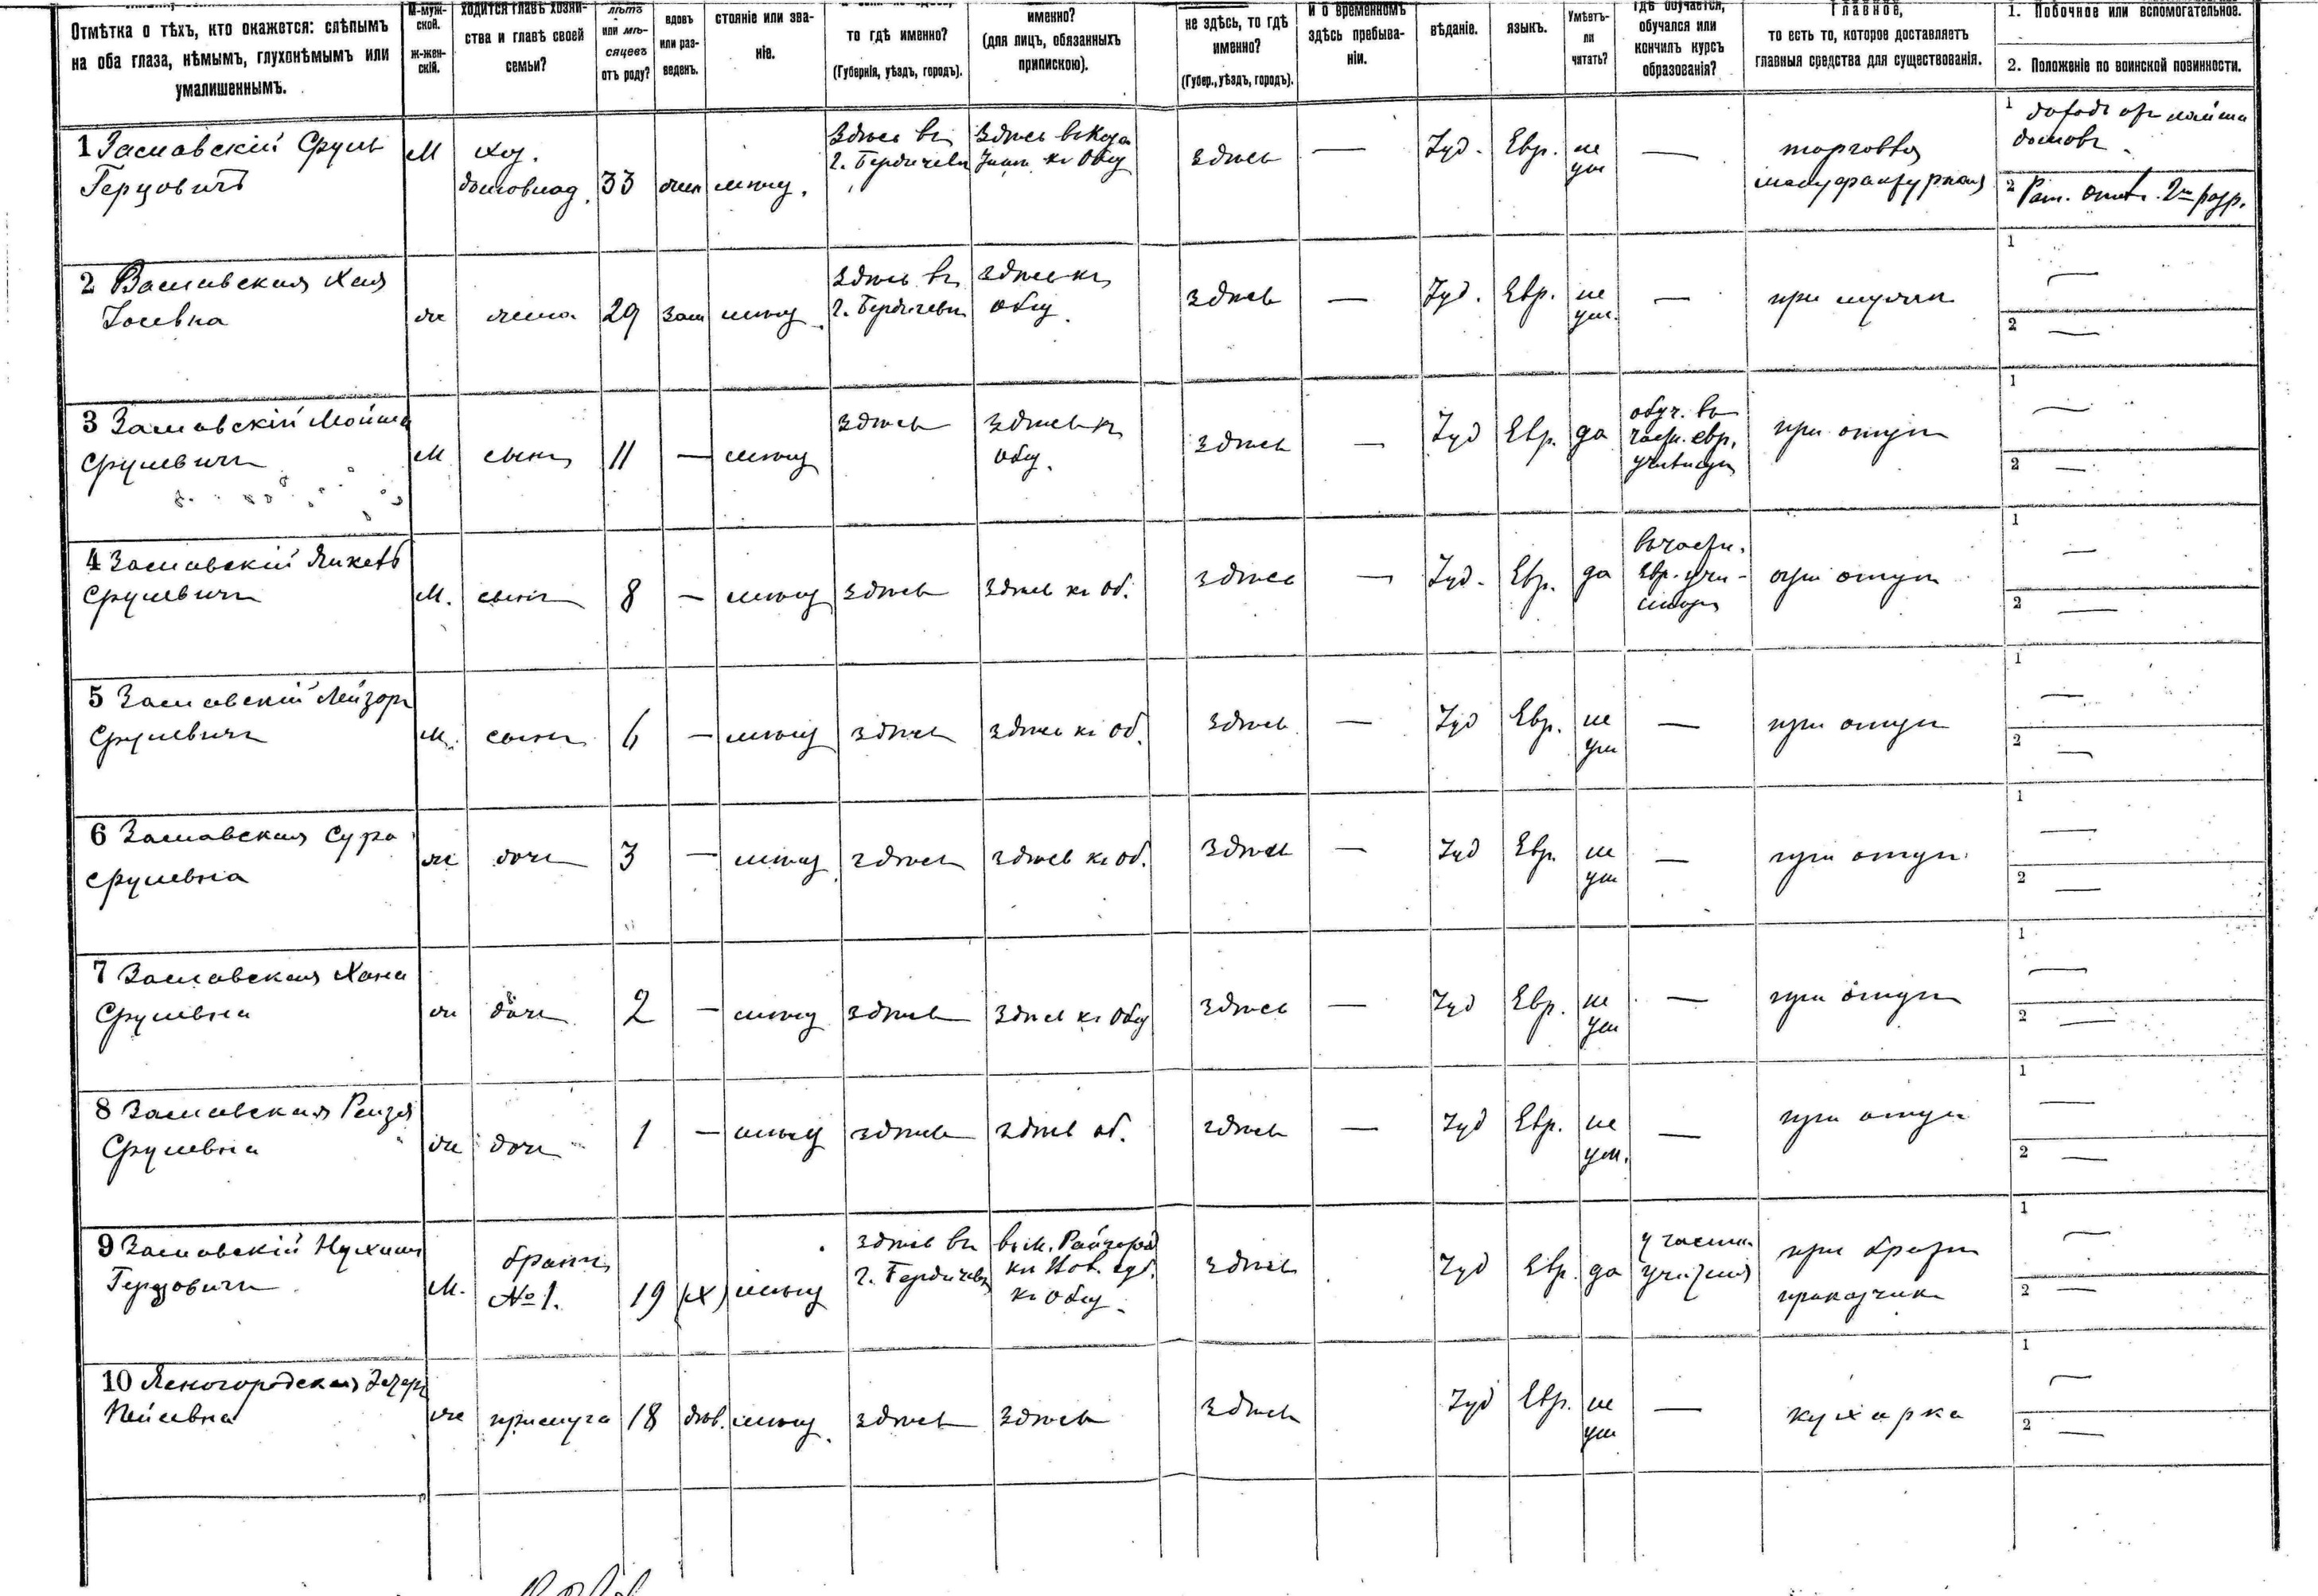 Отмѣтка о тѣхъ, кто окажется: слѣпымъ
на оба глаза, нѣмымъ, глухонѣмымъ или
умалишеннымъ.
М-муж-
ской.
ж-жен-
скій.
ходится главѣ хозяй-
ства и главѣ своей
семьи?
лѣтъ
или мѣ-
сяцевъ
отъ роду?
вдовъ
или раз-
веденъ.
стояніе или зва-
ніе.
то гдѣ именно?
(Губернія, уѣздъ, городъ).
именно?
(для лицъ, обязанныхъ
припискою).
не здѣсь, то гдѣ
именно?
(Губер., уѣздъ, городъ).
и о временномъ
здѣсь пребыва-
ніи.
вѣданіе.
языкъ.
Умѣетъ-
ли
читать?
гдѣ обучается,
обучался или
кончилъ курсъ
образованія?
Главное,
то есть то, которое доставляетъ
главныя средства для существованія.
1. Побочное или вспомогательное.
2. Положеніе по воинской повинности.
1 Заславскій Сруль
Герцовичъ
М
хоз.
домовлад.
33
жен
мѣщ.
Здѣсь въ
г. Бердичевѣ
Здѣсь
къ общ
здѣсь
—
Іуд.
Евр.
не
ум
—
торговля
мануфактурная
1
домовъ
2
2 Заславская Хая
Іосевна
ж
жена
29
зам
мѣщ.
Здѣсь въ
г. Бердичевѣ
здѣсь къ
общ.
здѣсь
—
Іуд.
Евр.
не
ум.
—
при мужѣ
1 —
2 —
3 Заславскій Мойше
Срулевичъ
М
сынъ
11
—
мѣщ
здѣсь
здѣсь къ
общ.
здѣсь
—
Іуд
Евр.
да
обуч. въ
част. евр.
училищѣ
при отцѣ
1 —
2 —
4 Заславскій
Срулевичъ
М.
сынъ
8
—
мѣщ
здѣсь
здѣсь къ об.
здѣсь
—
Іуд.
Евр.
да
въ част.
Евр. учи-
лищѣ
при отцѣ
1 —
2 —
5 Заславскій Лейзоръ
Срулевичъ
М.
сынъ
6
—
мѣщ
здѣсь
здѣсь къ об.
здѣсь
—
Іуд
Евр.
не
ум
—
при отцѣ
1 —
2 —
6 Заславская Сура
Срулевна
ж
дочь
3
—
мѣщ
здѣсь
здѣсь къ об.
здѣсь
—
Іуд
Евр.
не
ум
—
при отцѣ
1 —
2 —
7 Заславская Хана
Срулевна
ж
дочь
2
—
мѣщ
здѣсь
здѣсь къ общ
здѣсь
—
Іуд
Евр.
не
ум
—
при отцѣ
1 —
2 —
8 Заславская Рейзя
Срулевна
ж
дочь
1
—
мѣщ
здѣсь
здѣсь об.
здѣсь
—
Іуд
Евр.
не
ум.
—
при отцѣ
1 —
2 —
9 Заславскій Нухимъ
Герцовичъ
М.
братъ
№ 1.
19
(х)
мѣщ
здѣсь въ
г. Бердичевѣ
къ общ.
здѣсь
Іуд
Евр.
да
при братѣ
приказчик
1 —
2 —
10 Ясногородская
Пейсевна
ж
прислуга
18
дѣв.
мѣщ.
здѣсь
здѣсь
здѣсь
Іуд
Евр.
не
ум
—
кухарка
1 —
2 —